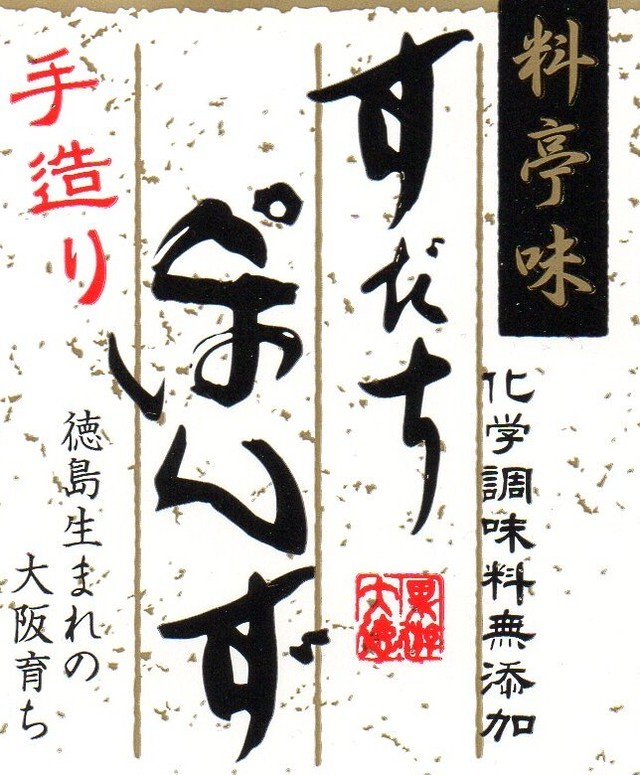 料亭味
化学調味料無添加
すだち
ぽんず
手造り
徳島生まれの
大阪育ち